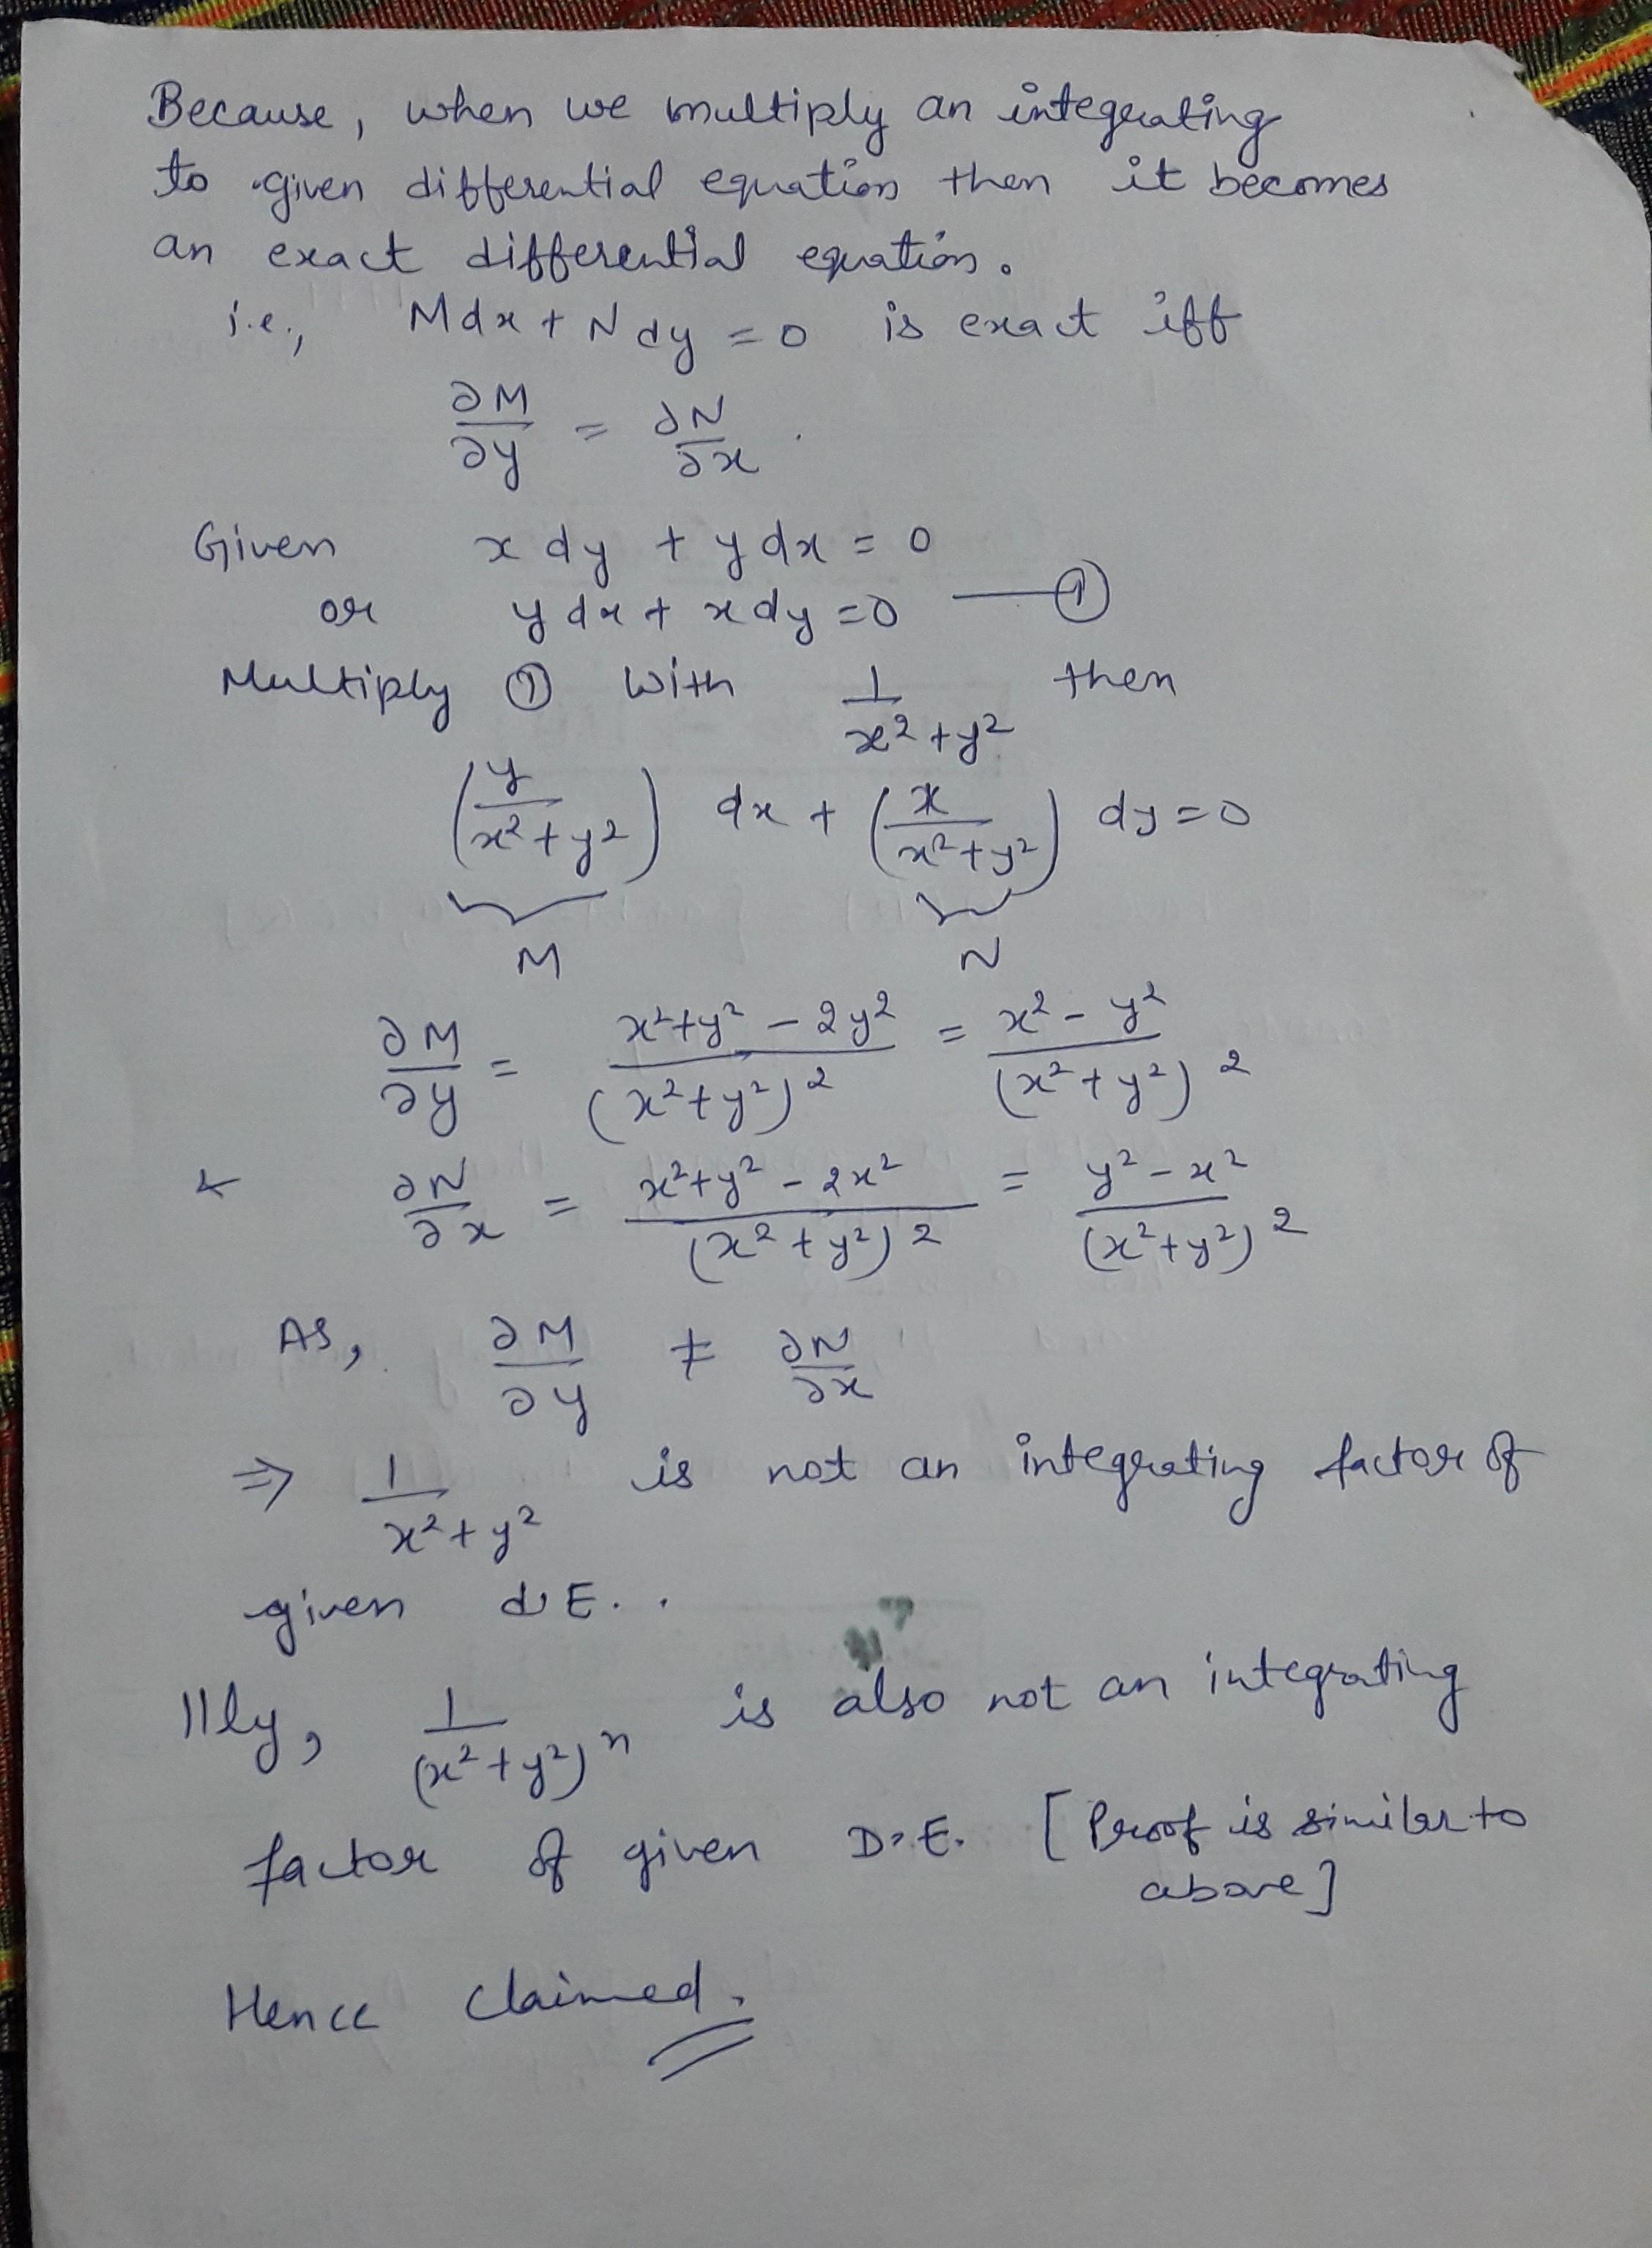 Because, when we multiply an integrating
to given differential equation then it becomes
an exact differential equation.
i.e., Mdx + Ndy = 0 is exact iff
∂M/∂y = ∂N/∂x.
Given x dy + y dx = 0
or y dx + x dy = 0 — ①
Multiply ① with 1/(x²+y²) then
(y/(x²+y²)) dx + (x/(x²+y²)) dy = 0
M N
∂M/∂y = (x²+y² - 2y²)/(x²+y²)² = (x² - y²)/(x²+y²)²
& ∂N/∂x = (x²+y² - 2x²)/(x²+y²)² = (y² - x²)/(x²+y²)²
As, ∂M/∂y ≠ ∂N/∂x
⇒ 1/(x²+y²) is not an integrating factor of
given d.E..
llly, 1/(x²+y²)ⁿ is also not an integrating
factor of given D.E. [Proof is similar to
above]
Hence claimed.